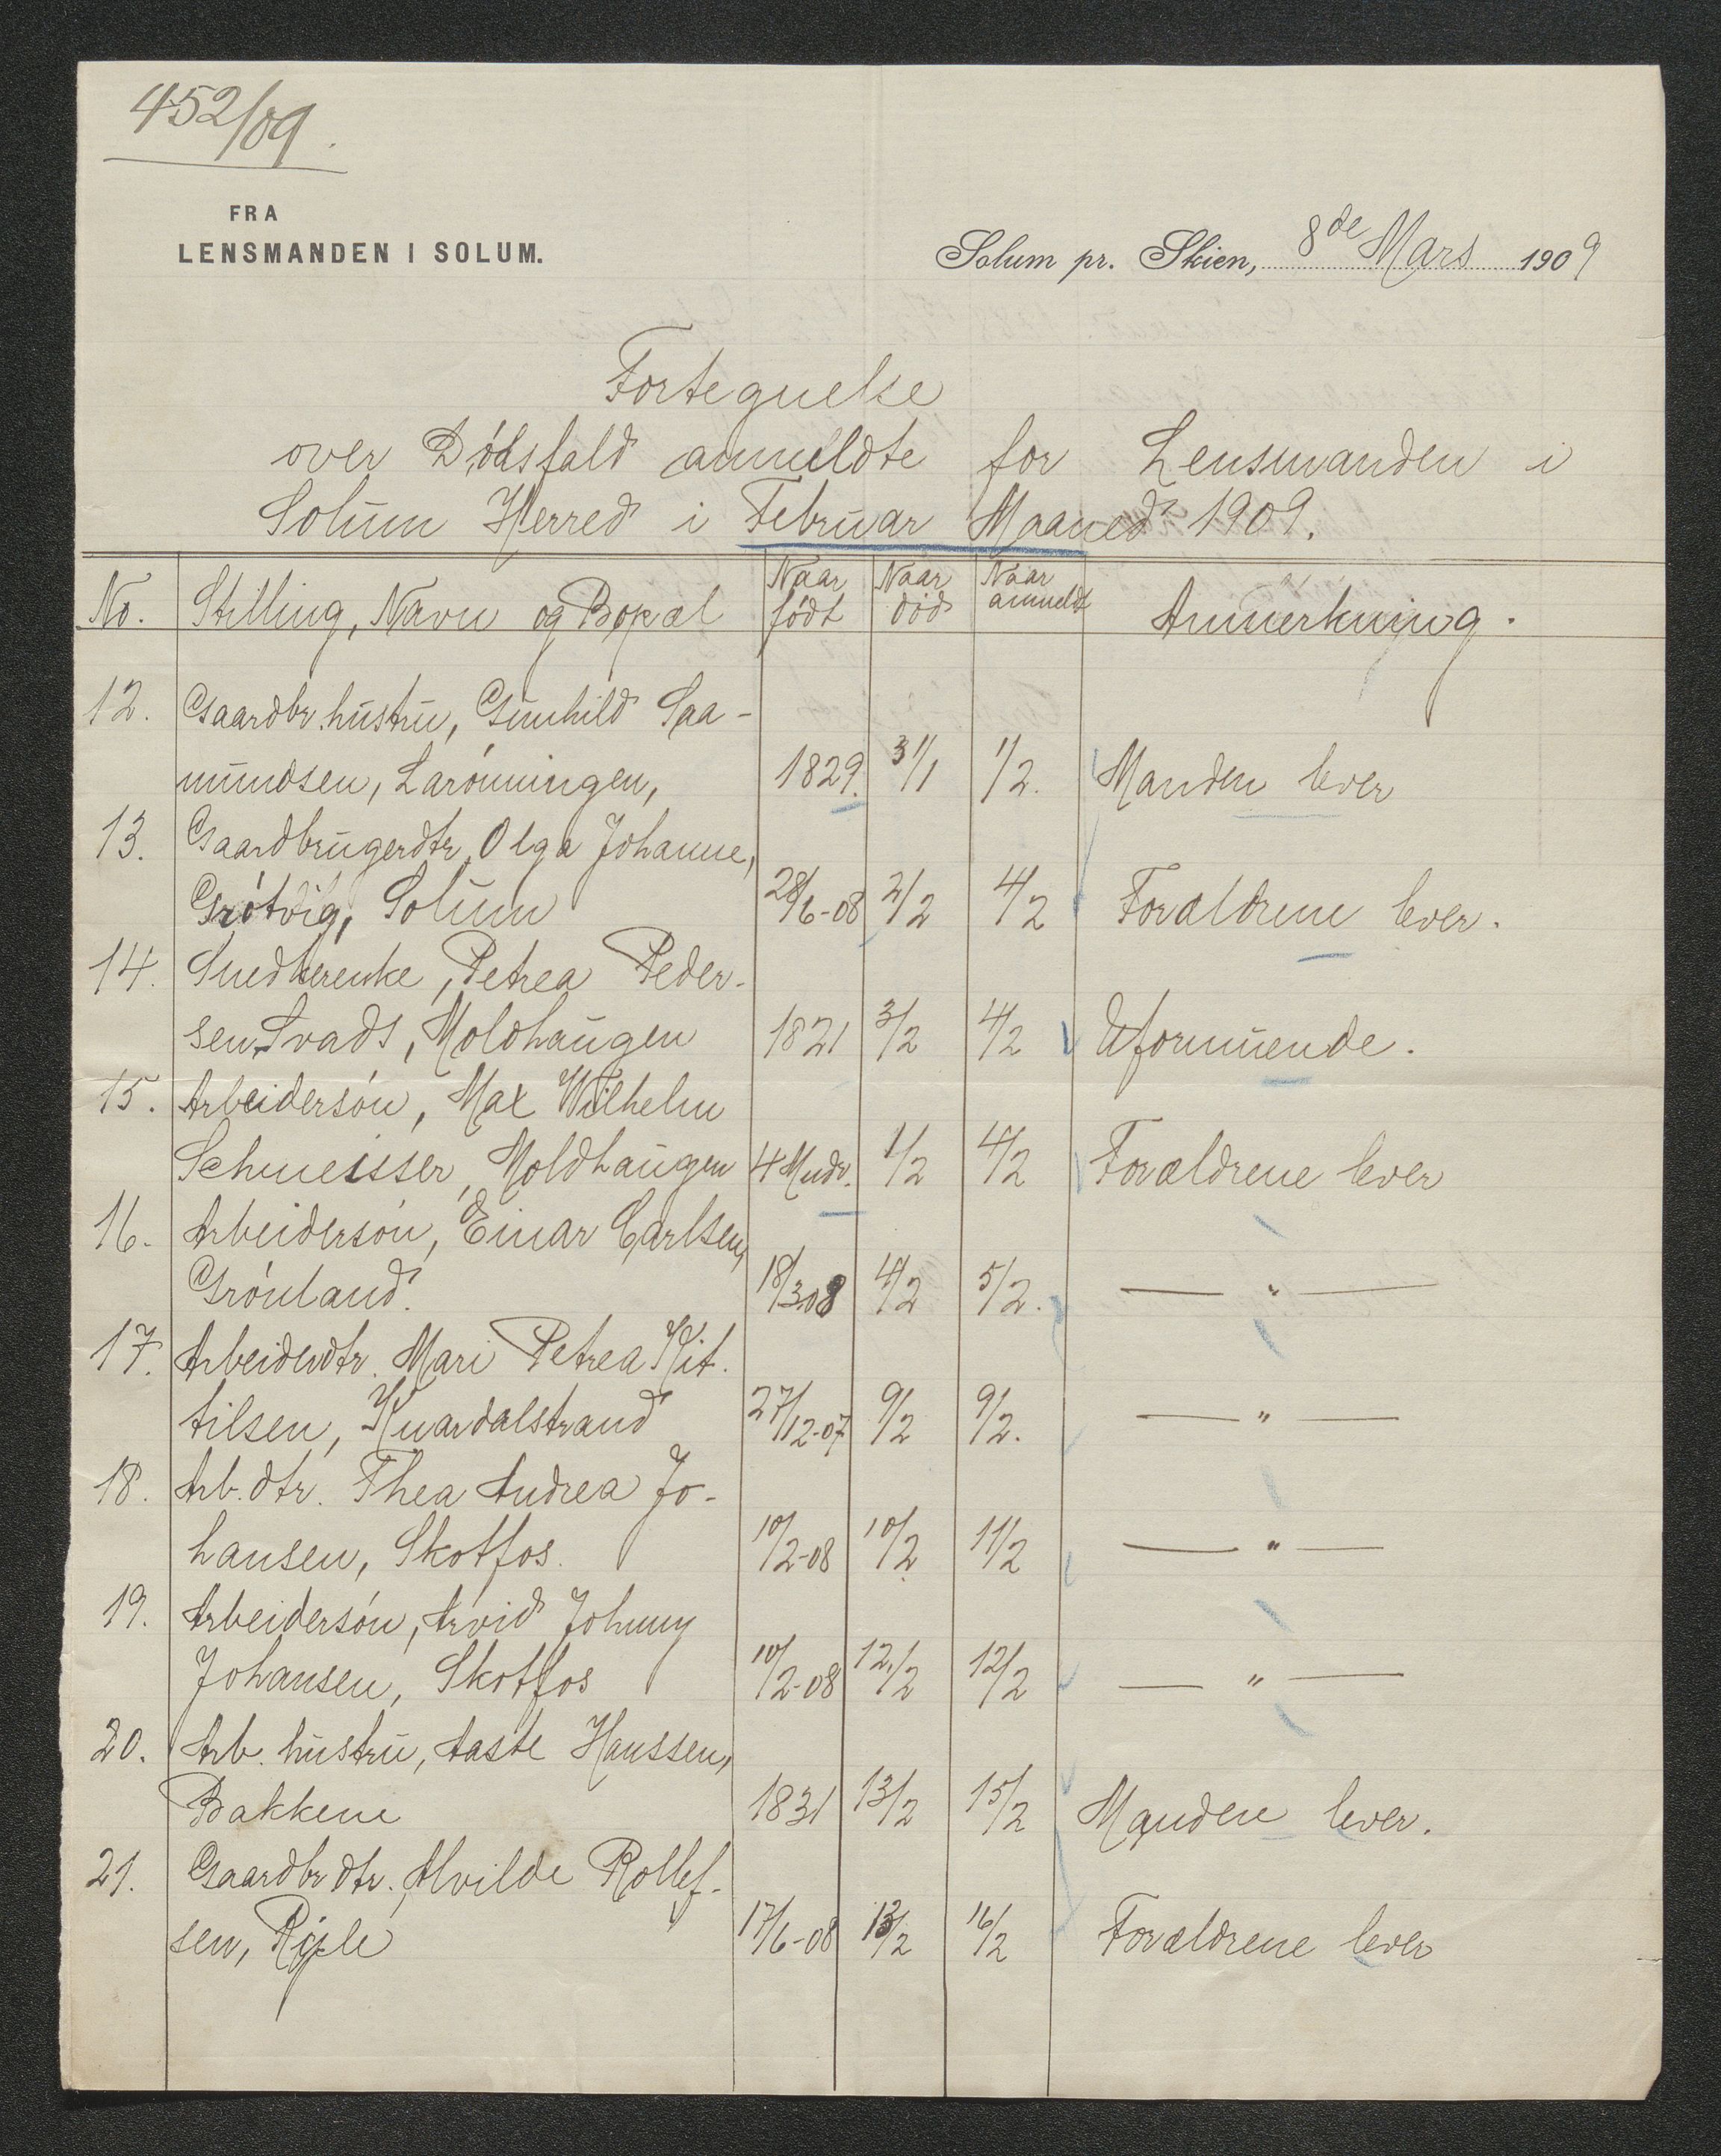 452/09.
FRA
LENSMANDEN I SOLUM.
Solum pr. Skien, 8de Mars 1909
Fortegnelse
over Dödsfald anmeldte for Lensmanden i
Solum Herred i Februar Maaned 1909.
No. Stilling, Navn og Bopæl Naar födt Naar död Naar anmeldt Anmerkning.
12. Gaardbr. hustru, Gunhild Saa-
mundsen, Larönningen, 1829. 31/1 1/2. Manden lever
13. Gaardbrugerdtr. Olga Johanne,
Grötvig, Solum 28/6-08 2/2 4/2 Forældrene lever.
14. Snedkerenke, Petrea Peder-
sen Svads, Moldhaugen 1821 3/2 4/2 Uformuende.
15. Arbeidersön, Max Wilhelm
Schmeisser, Moldhaugen 4 Mndr. 1/2 4/2 Forældrene lever
16. Arbeidersön, Einar Carlsen,
Grönland. 18/3 08 4/2 5/2. — " —
17. Arbeiderdtr. Mari Petrea Kit-
tilsen, Knardalstrand 27/12-07 9/2 9/2. — " —
18. Arb. dtr. Thea Andrea Jo-
hansen, Skotfos. 10/2-08 10/2 11/2 — " —
19. Arbeidersön, Arvid Johnny
Johansen, Skotfos 10/2-08 12/2 12/2 — " —
20. Arb. hustru, Aaste Hanssen,
Bakkene 1831 13/2 15/2 Manden lever.
21. Gaardbr. dtr. Alvilde Rollef-
sen, 17/6-08 13/2 16/2 Forældrene lever